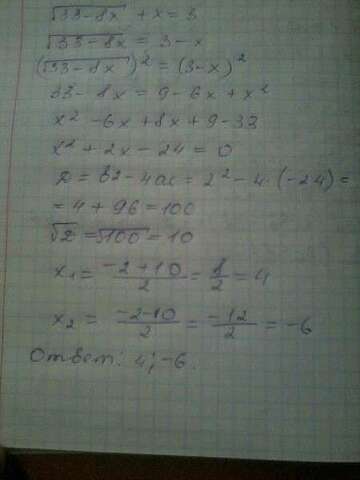 √33-8x + x = 3
√33-8x = 3-x
(√33-8x)² = (3-x)²
33-8x = 9-6x+x²
x²-6x+8x+9-33
x²+2x-24=0
D = b2-4ac = 2²-4·(-24)=
= 4+96=100
√D = √100 = 10
x₁ = -2+10/2 = 8/2 = 4
x₂ = -2-10/2 = -12/2 = -6
Ответ: 4; -6.